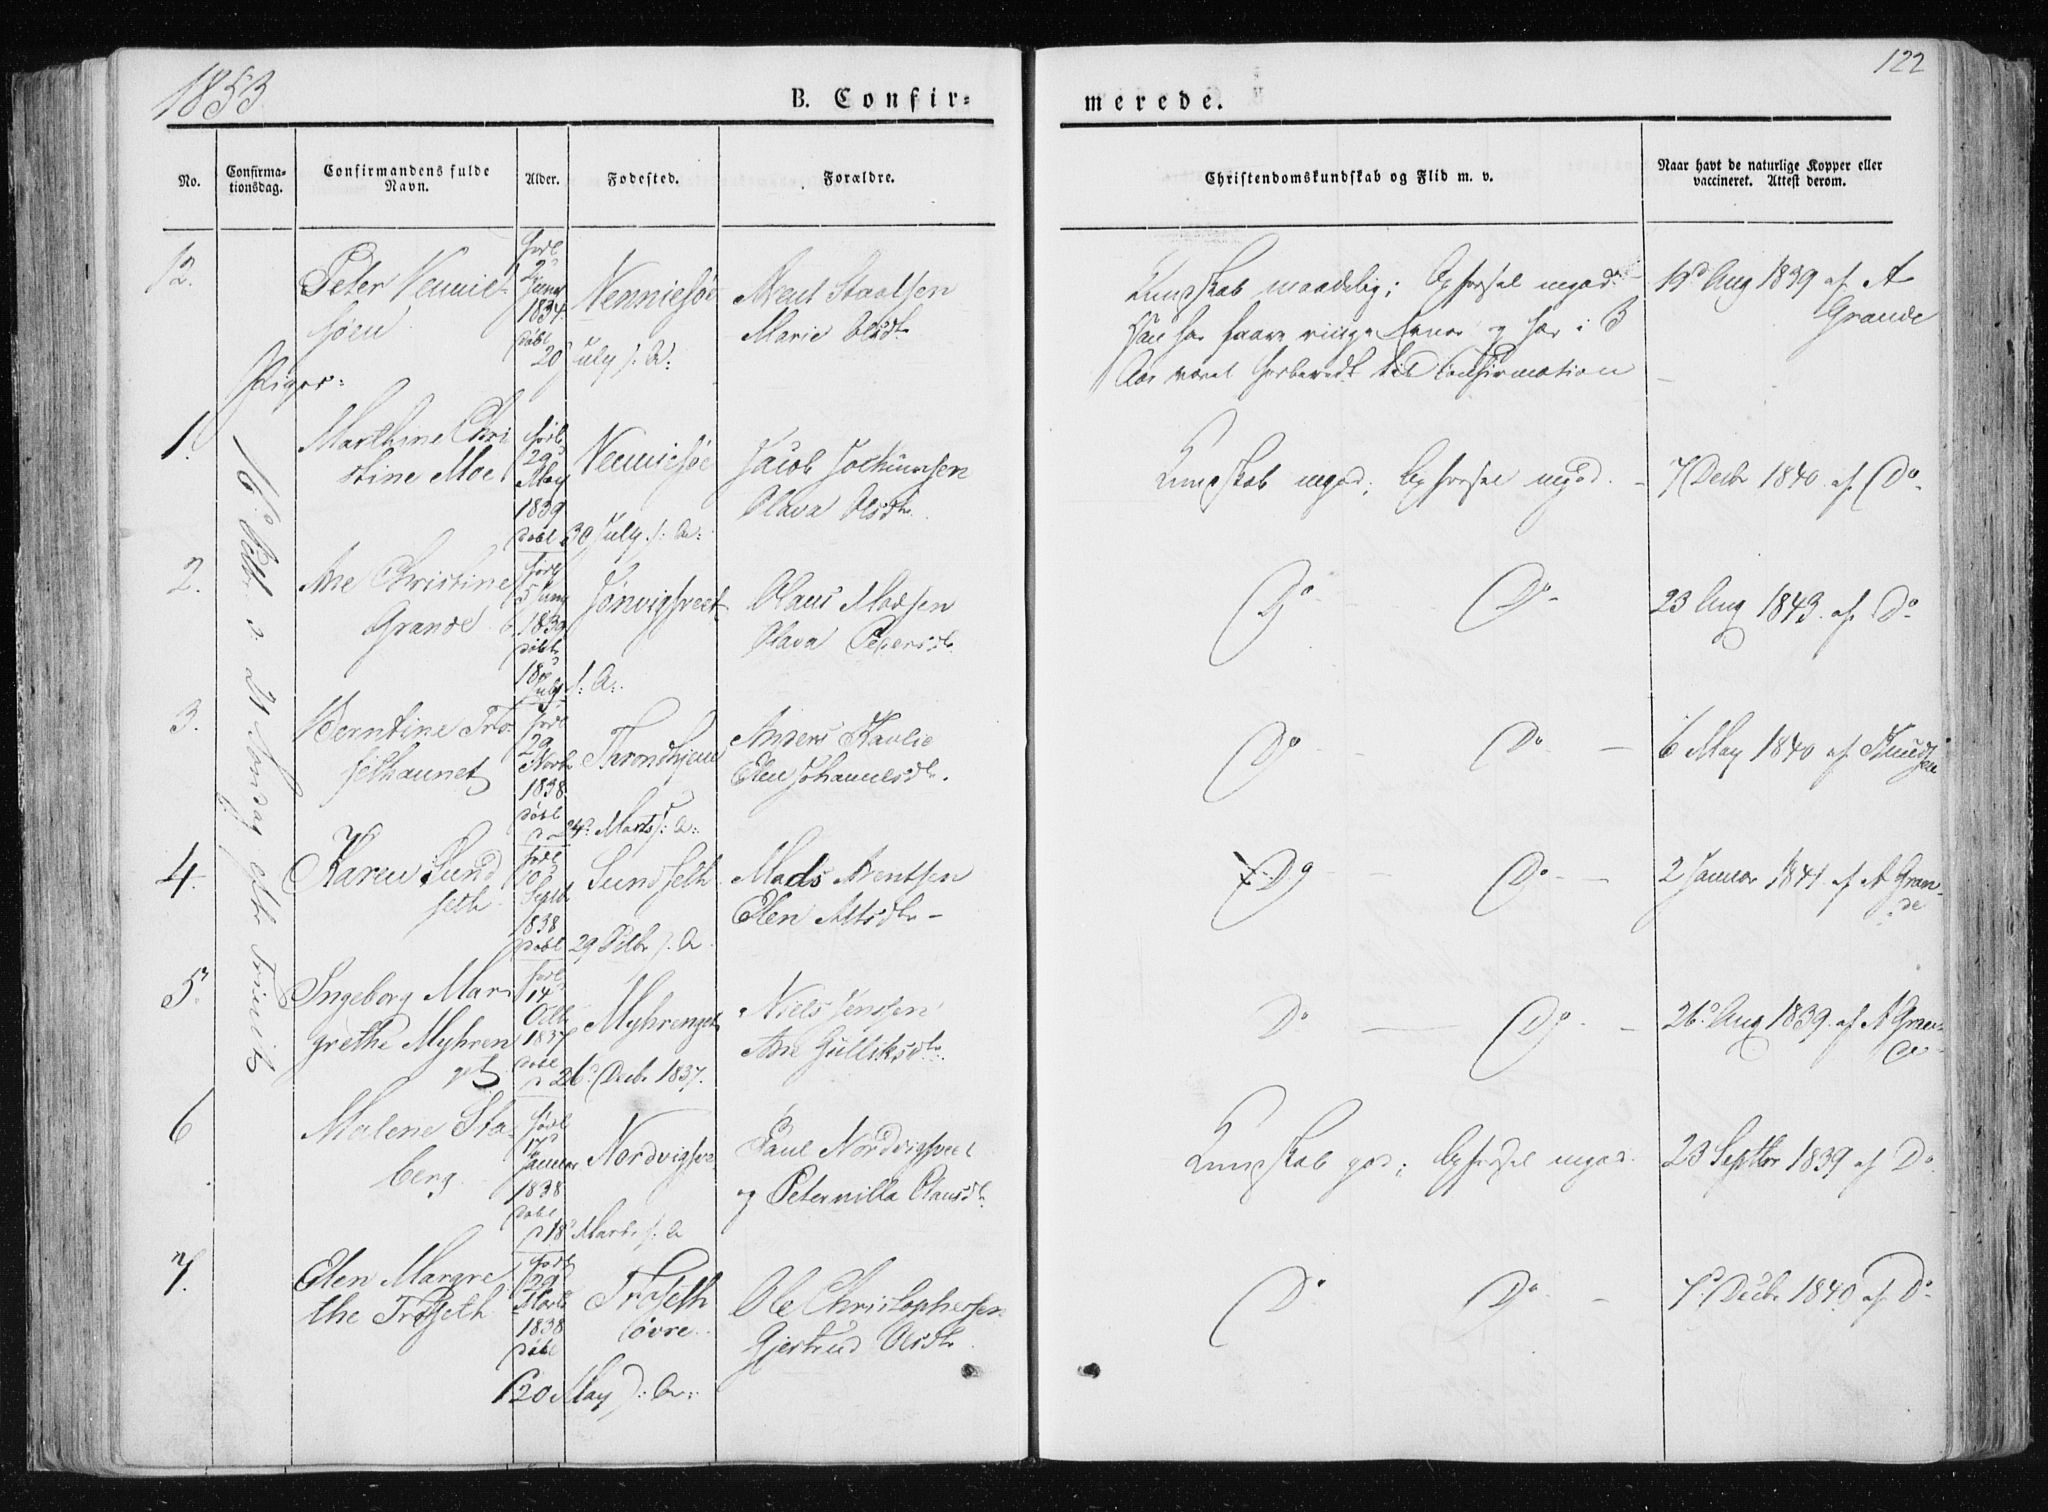 1853.
122
B. Confir=
merede.
No.
Confirma-
tionsdag.
Confirmandens fulde
Navn.
Alder.
Fødested.
Forældre.
Christendomskundskab og Flid m. v.
Naar havt de naturlige Kopper eller
vaccineret. Attest derom.
12.
Peter Vennie-
søen
1834
20 July s: A:
Venniesøe
Arent Staalsen
Marie Olsdtr
Kundskab maadelig; Opførsel mgod.
Aar været forberedt til Confirmation
19d Aug 1839 af A
Grande
Piger:
1.
Marthine Chri
stine Moe
født
29d
May
1839
døbt 30 July s: A:
Venniesøe
Jacob Jochumsen
Olava Olsdtr
Kundskab mgod; Opførsel mgod.
7 Decbr 1840 af Do
2.
Ane Christine
Grande
født
1839
døbt
18d
July s: A:
Olaus Madsen
Olava Petersdtr
Do Do
23 Aug 1843. af Do
3.
Berntine Trø-
sethaunet
født
29
1838
døbt
24d Marts s: A:
Throndhjem
Anders Kavlie
Elen Johannesdtr.
Do Do
6 May 1840 af Knudt
sen
4.
Karen Sund
seth
født
10d
Septb
1838
døbt 29 s: A
Sundseth
Mads Arentsen
Elen Altsdtr
Do Do
2 Januar 1841 af A Gran-
de
5.
Ingeborg Mar-
grethe Myhren
get
født
14
Octb
1837
døbt
26d Decbr 1837.
Myhrenget
Niels Jenssen
Ane Gulliksdtr
Do Do
26d Aug 1839 af A Gran-
de
6
Malene Sta-
berg
født
17d
Januar
1838
døbt
18d Marts s: A
Paul Nordvigsveet
og Peternilla Olausdtr
Kundskab god; Opførsel mgod.
23 Septbr 1839 af Do
7.
Elen Margre
the Trøseth
født
29
1838
døbt
20 May s: A:
Trøseth
øvre
Ole Christophersen
Gjertrud Olsdtr
Do Do
7d Decbr 1840 af Do